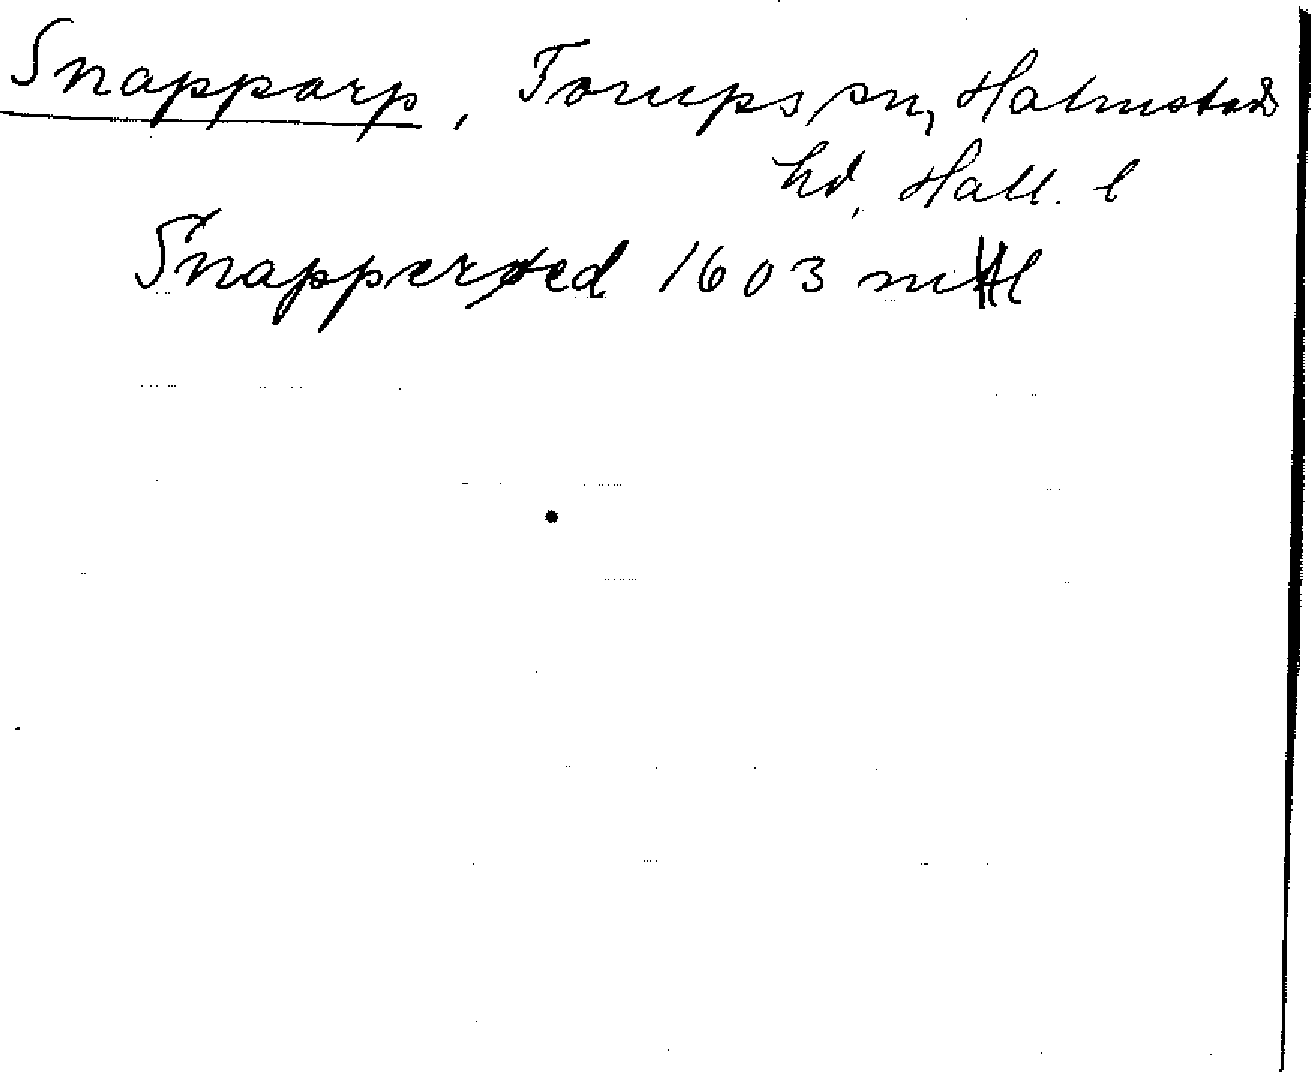 Snapparp, Torups sn, Halmstads
hd, Hall. l
Snappered 1603 mtl